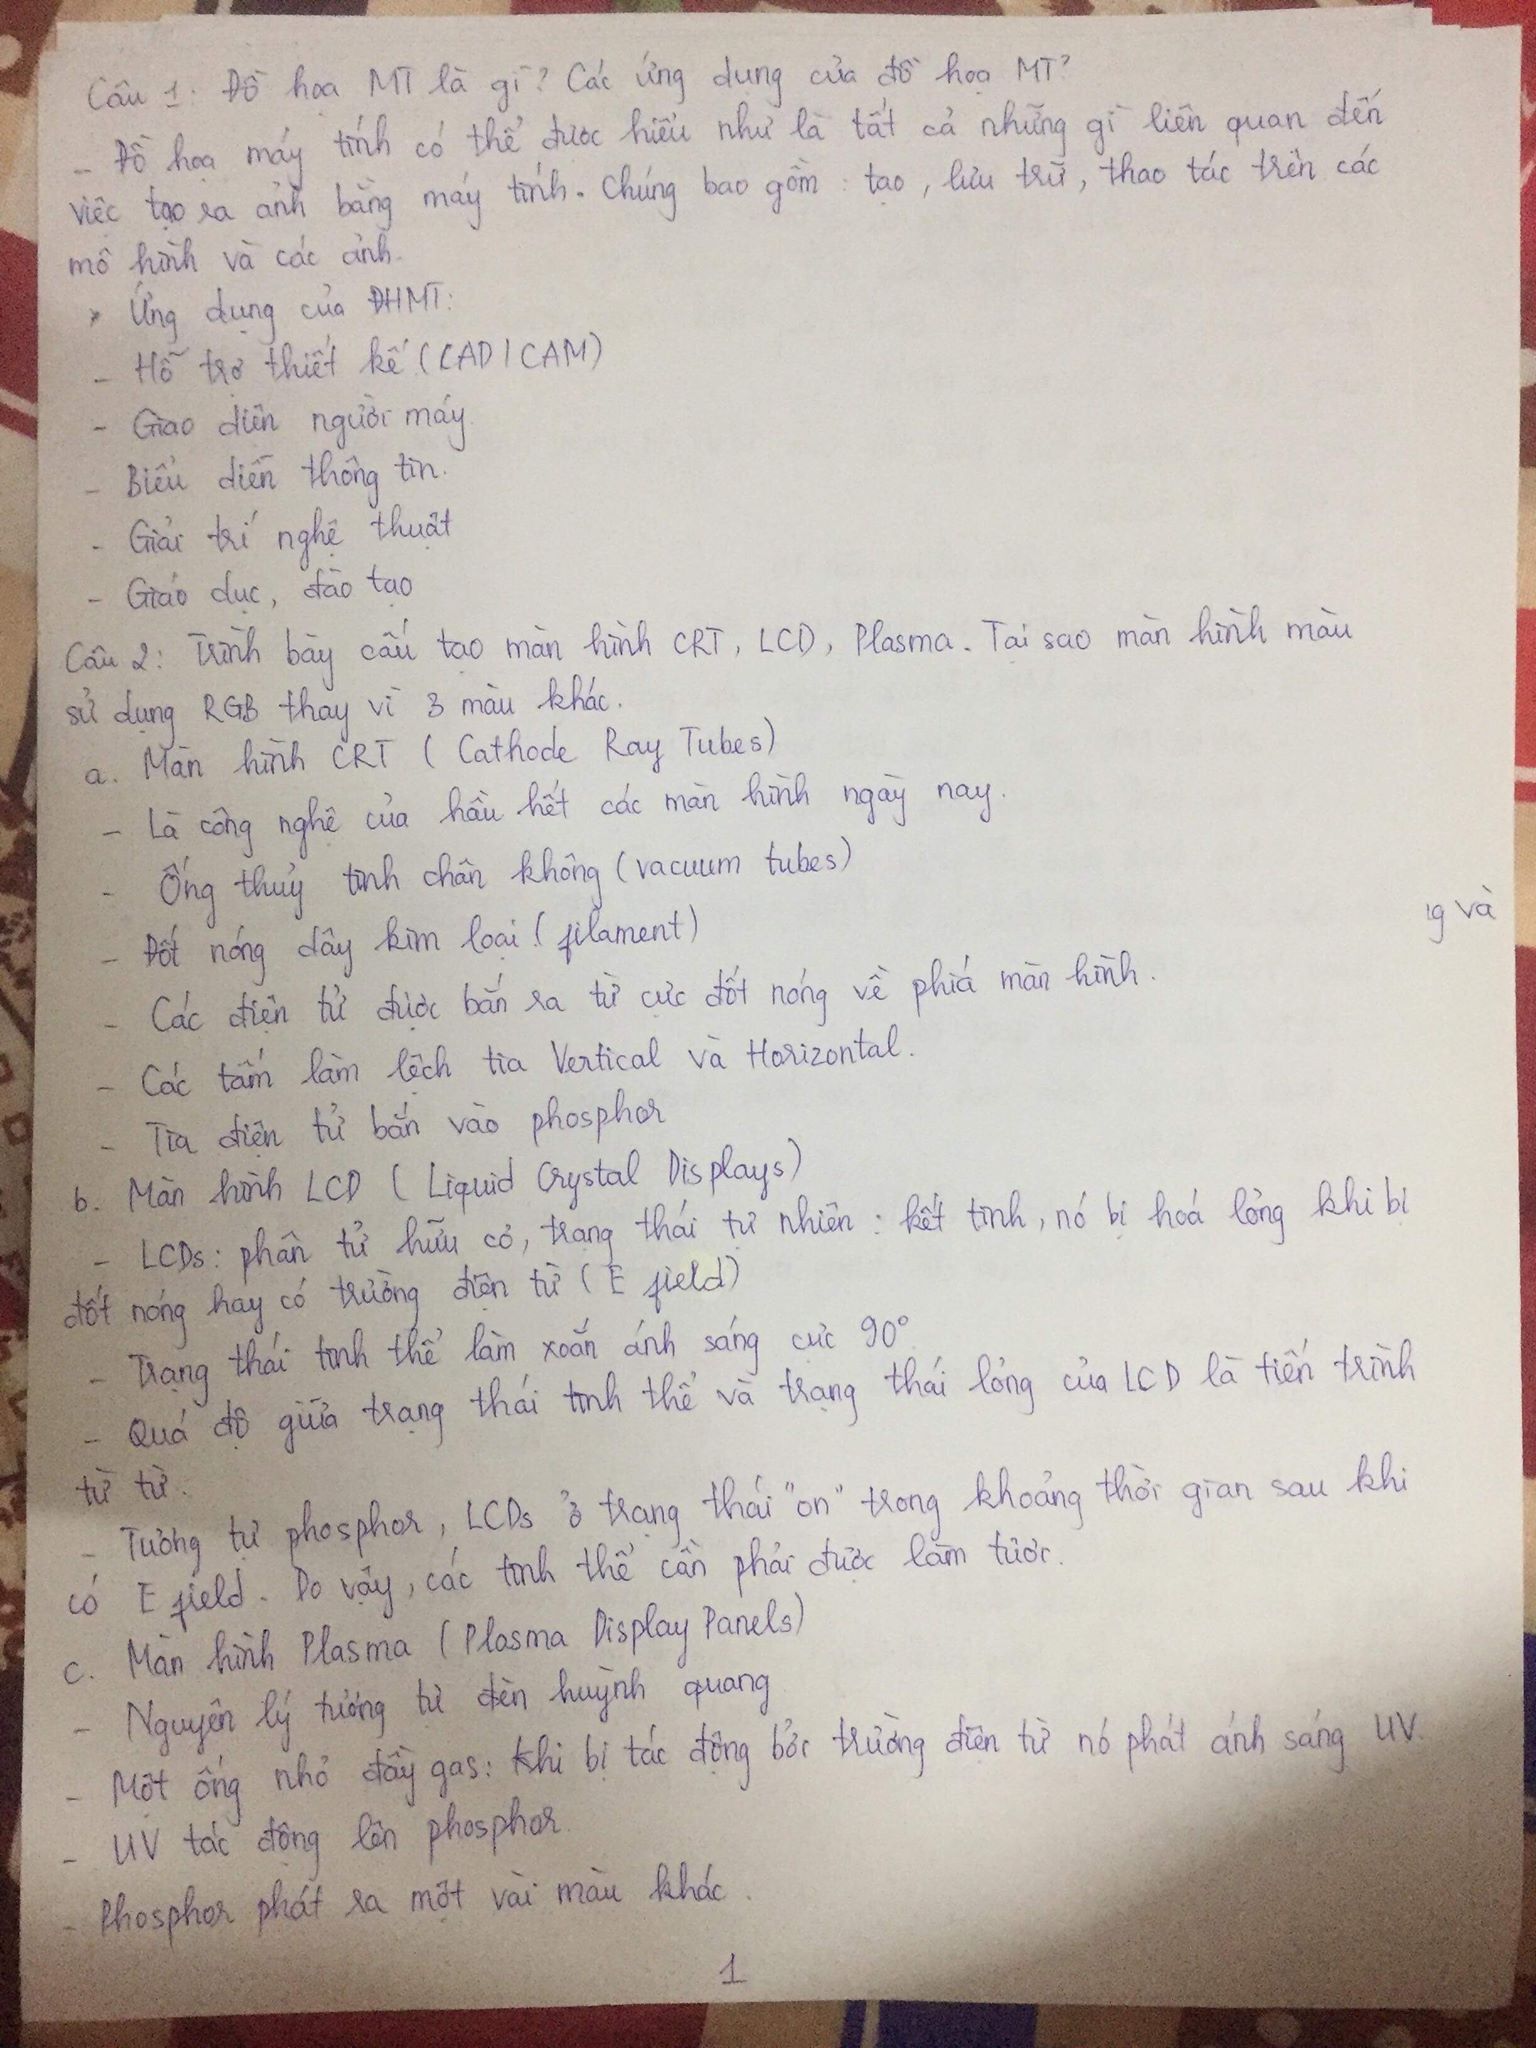 Câu 1: Đồ họa MT là gì? Các ứng dụng của đồ họa MT?
- Đồ họa máy tính có thể được hiểu như là tất cả những gì liên quan đến
việc tạo ra ảnh bằng máy tính. Chúng bao gồm: tạo, lưu trữ, thao tác trên các
mô hình và các ảnh.
* Ứng dụng của ĐHMT:
- Hỗ trợ thiết kế (CAD/CAM)
- Giao diện người máy
- Biểu diễn thông tin.
- Giải trí nghệ thuật
- Giáo dục, đào tạo
Câu 2: Trình bày cấu tạo màn hình CRT, LCD, Plasma. Tại sao màn hình màu
sử dụng RGB thay vì 3 màu khác.
a. Màn hình CRT (Cathode Ray Tubes)
- Là công nghệ của hầu hết các màn hình ngày nay.
- Ống thuỷ tinh chân không (vacuum tubes)
- Đốt nóng dây kim loại (filament)
ng và
- Các điện tử được bắn ra từ cực đốt nóng về phía màn hình.
- Các tấm làm lệch tia Vertical và Horizontal.
- Tia điện tử bắn vào phosphor
b. Màn hình LCD (Liquid Crystal Displays)
- LCDs: phân tử hữu cơ, trạng thái tự nhiên: kết tinh, nó bị hoá lỏng khi bị
đốt nóng hay có trường điện từ (E field)
- Trạng thái tinh thể làm xoắn ánh sáng cực 90°
- Quá độ giữa trạng thái tinh thể và trạng thái lỏng của LCD là tiến trình
từ từ.
- Tương tự phosphor, LCDs ở trạng thái "on" trong khoảng thời gian sau khi
có E field. Do vậy, các tinh thể cần phải được làm tươi.
c. Màn hình Plasma (Plasma Display Panels)
- Nguyên lý tương tự đèn huỳnh quang
- Một ống nhỏ đầy gas: Khi bị tác động bởi trường điện từ nó phát ánh sáng UV.
- UV tác động lên phosphor.
- Phosphor phát ra một vài màu khác.
1